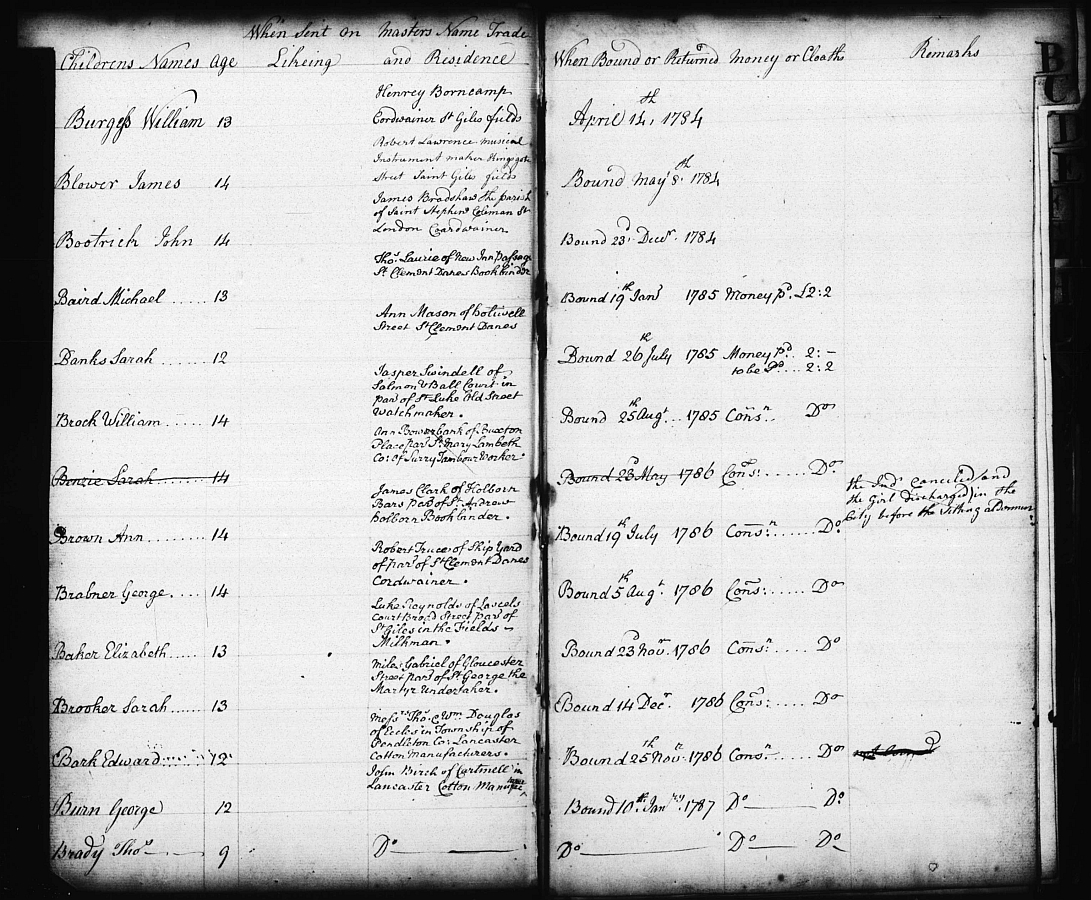 Childrens Names Age When Sent on Likeing Masters Name Trade and Residence When Bound or Returned Money or Cloaths Remarks
Henrey Borncamp
Burgess William 13 Cordwainer St Giles fields April 14th, 1784
Robert Lawrence musical
Instrument maker Kingsgat
Blower James 14 Street Saint Giles fields Bound May 8th 1784
James Bradshaw the parish
of Saint Stephens Coleman St
Bootrich John 14 London Coardwainer Bound 23d Decr. 1784
Thos. Laurie of New Inn Passage
St Clement Danes Bookbinder
Baird Michael ...... 13 Bound 19th Jany 1785 Money pd. £2:2
Ann Mason of holiwell
Street St Clement Danes
Banks Sarah ...... 12 Bound 26th July 1785 Money pd .. 2:-
to be Do ... 2:2
Jasper Swindell of
Salmon & Ball Court in
par of St Luke Old Street
Brock William ...... 14 Watchmaker. Bound 25th Augt ... 1785 Consn. Do
Ann Bowerbank of Buxton
Place par St Mary Lambeth
Co: of Surry Tambour Worker
Benzie Sarah 14 Bound 23d May 1786 Cons: ...... Do. the Indr Canceled and
the Girl discharged in the
City before the Sitting
James Clark of Holborn
Bars par of St Andrew
holborn Bookbinder.
Brown Ann ...... 14 Bound 19th July 1786 Consn: ...... Do
Robert Truce of Ship Yard
of par of St Clement Danes
Brabner George .... 14 Cordwainer. Bound 5th Augt 1786 Cons: ...... Do
Luke Reynolds of Lascels
Court Broad Street par of
St Giles in the Fields
Milkman.
Baker Elizabeth ..... 13 Bound 23d Novr. 1786 Consn: ...... Do
Miles Gabriel of Gloucester
Street par of St George the
Martyr Undertaker.
Brooker Sarah ...... 13 Bound 14 Decr. 1786 Cons: ...... Do
Messrs Thos. & Wm. Douglas
of Eccles in Township of
Pendleton Co: Lancaster
Bark Edward ...... 12 Cotton Manufacturers. Bound 25th Novr. 1786 Consn ...... Do
John Birch of Cartmell in
Lancaster Cotton
Burn George 12 Bound 10th Jany. 1787 Do Do
Brady Thos 9 Do Do Do Do
B
C
D
E